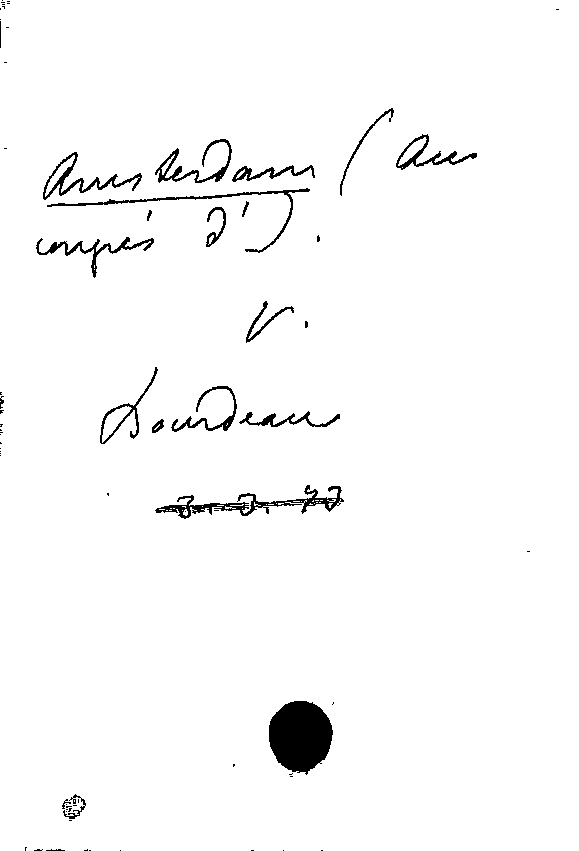 Amsterdam (Au
congrès d').
V.
Bourdeau